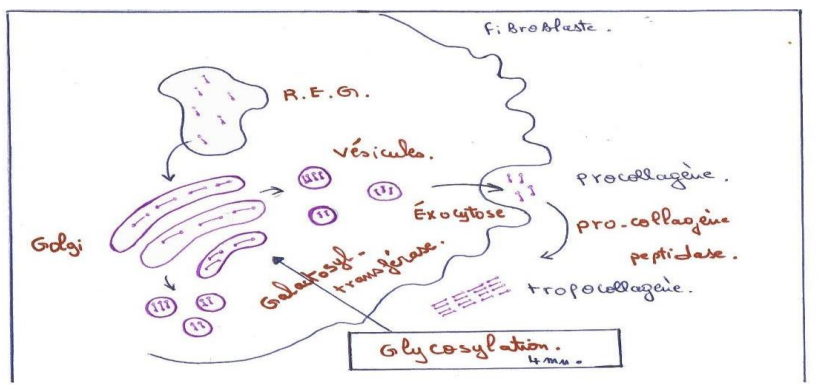 FiBroBlaste.
R.E.G.
Vésicules.
procollagène.
Éxocytose
pro-collagène
peptidase.
Golgi
Galactosyl-
transférase.
tropocollagène.
Glycosylation.